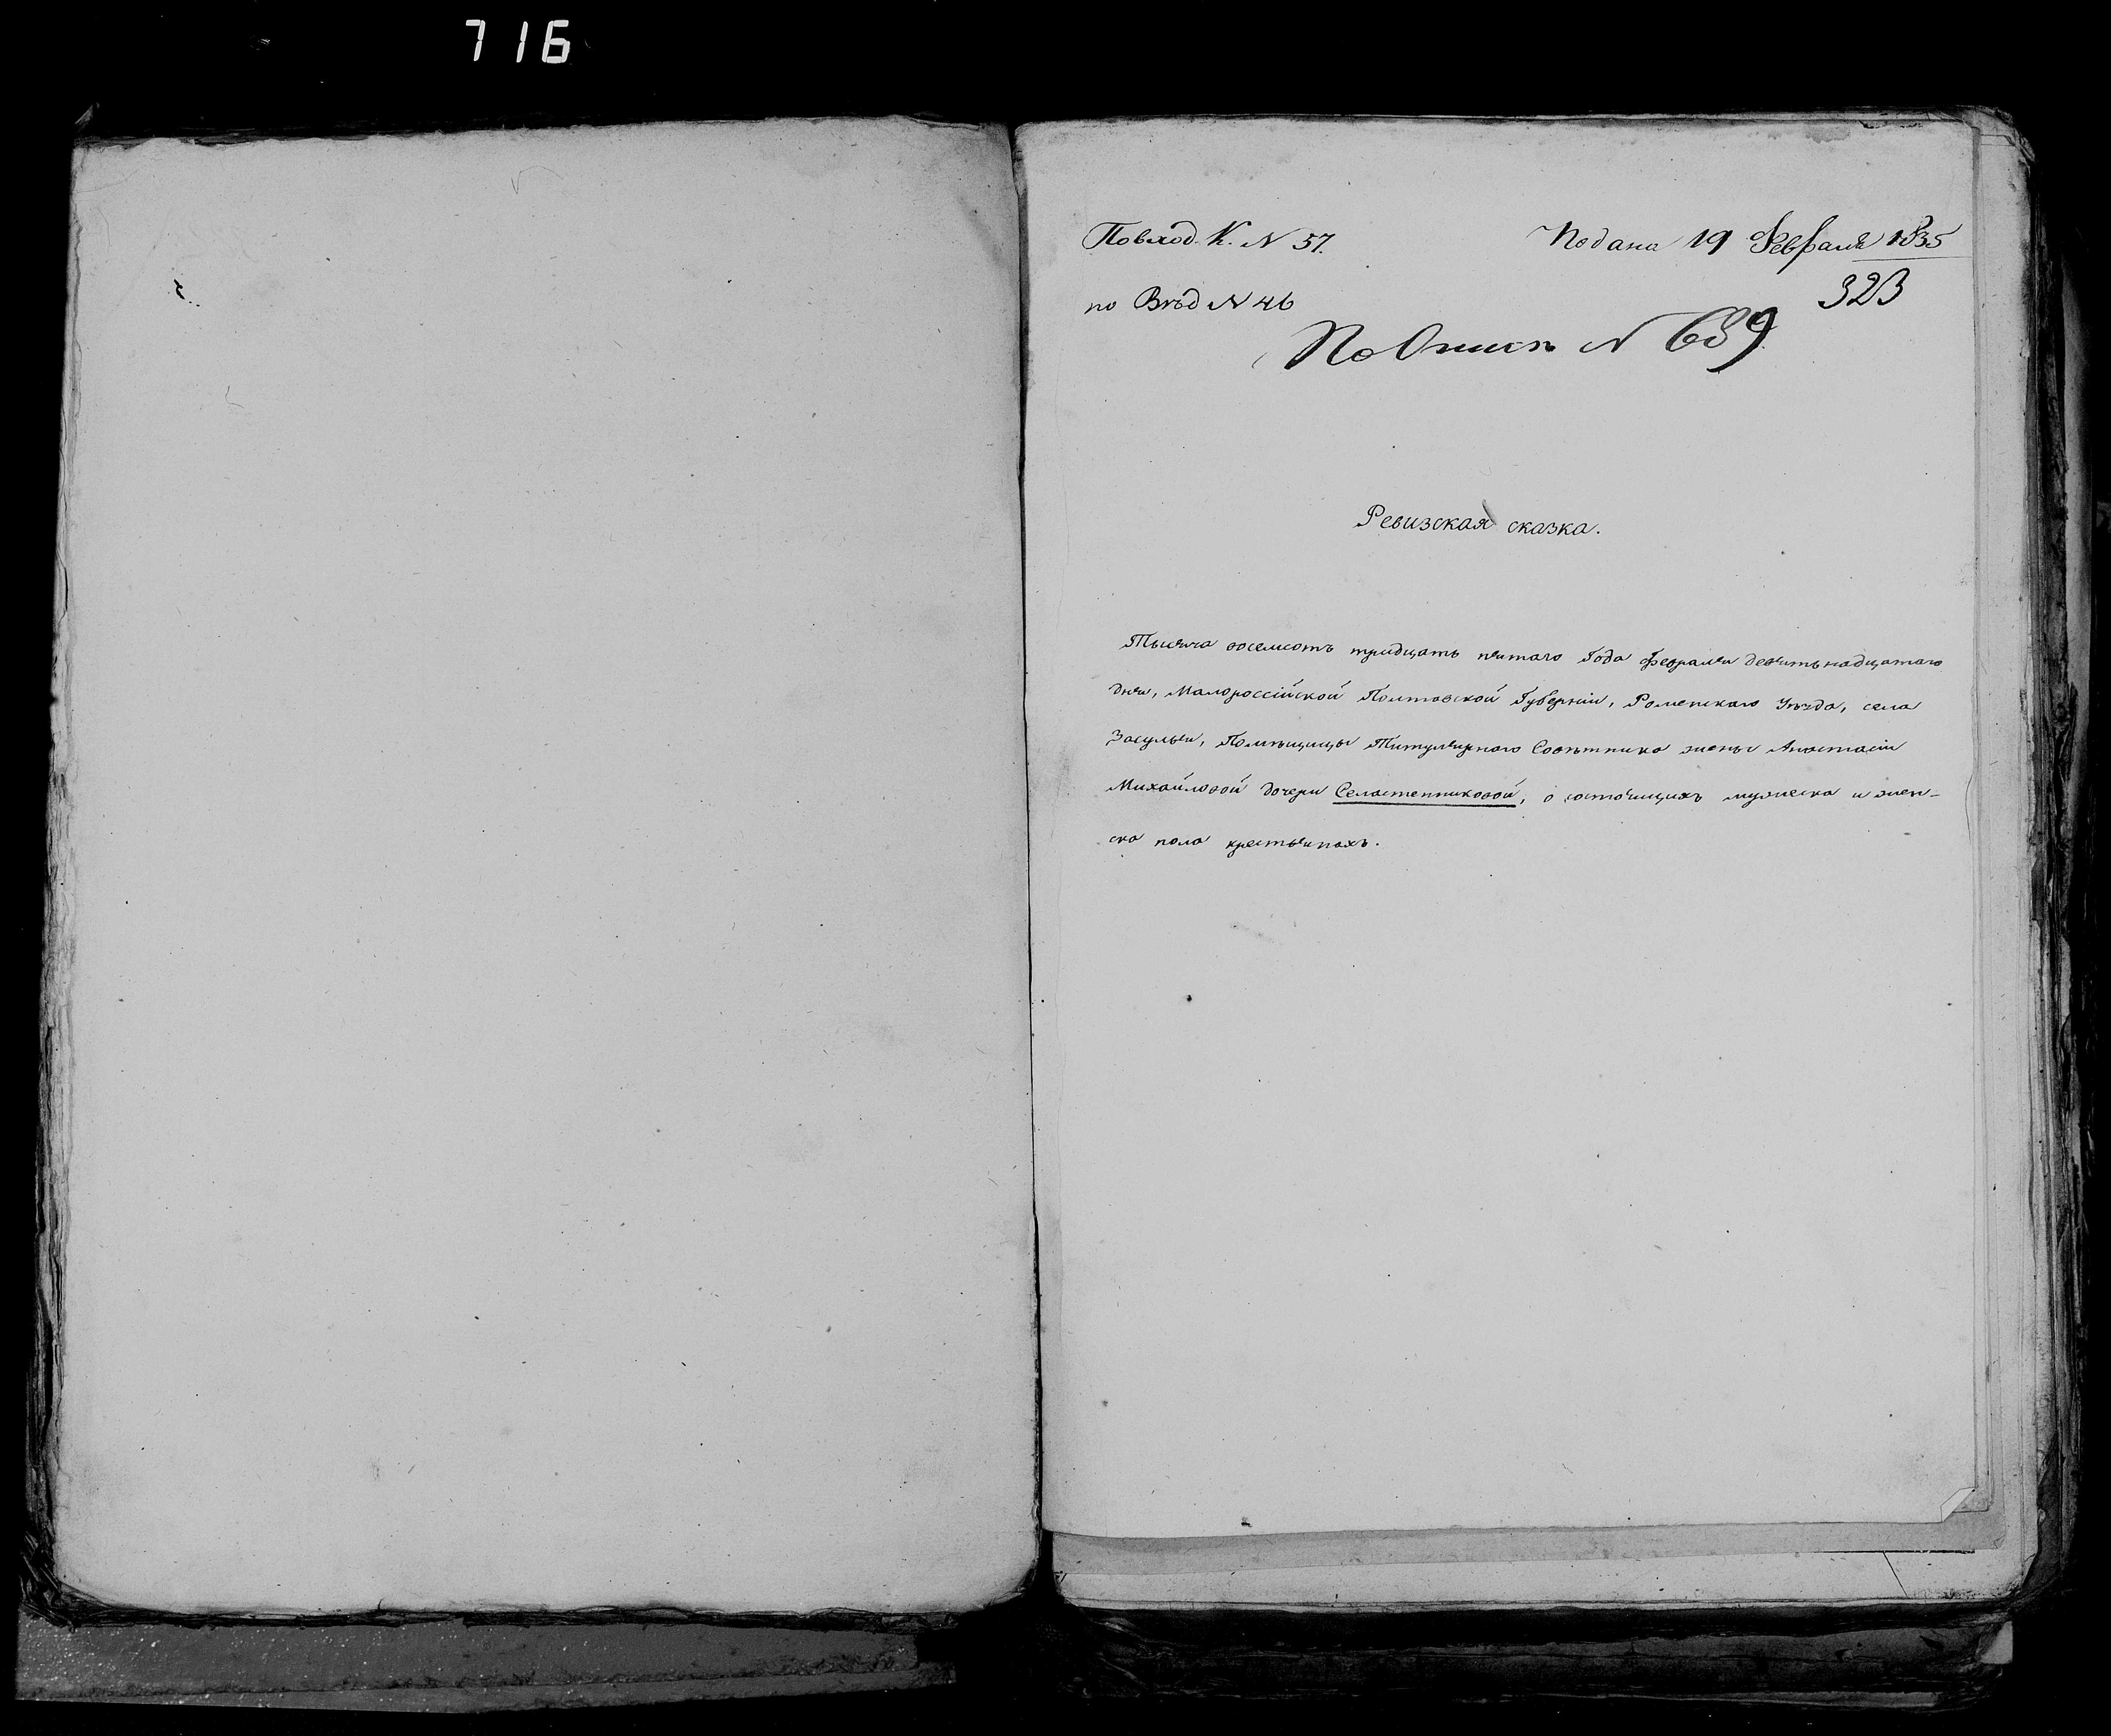 716
По вход. К. N 57.
Подана 19 Февраля 1835
323
по Вѣд N 46
По Описи N 639
Ревизская сказка.
Тысяча восемсотъ тридцать пятаго Года февраля девятьнадцатаго
дня, Малороссійской Полтавской Губерніи, Роменскаго Уѣзда, села
Засулья, Помѣщицы Титулярнаго Совѣтника жены Анастасіи
Михайловой дочери Селастенниковой, о состоящихъ мужеска и жен-
ска пола крестьянахъ.